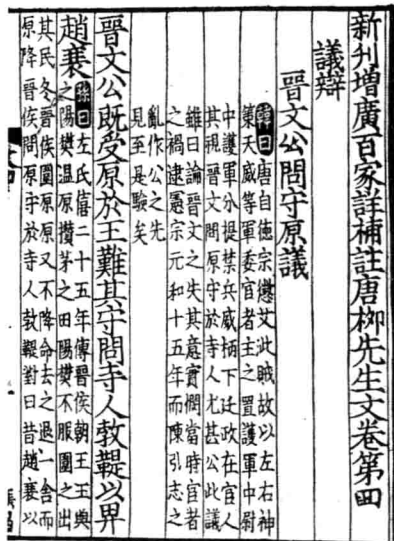 新刋增廣百家詳補註唐柳先生文卷第四
議辯
晉文公問守原議
韓曰唐自德宗懲艾此賊故以左右神
策天威等軍委官者主之置護軍中尉
中護軍分提禁兵威柄下迁政在宦人
其視晉文問原守於寺人尤甚公此議
雖曰論晉文之失其意實憫當時宦者
之禍逮憲宗元和十五年而陳弘志之
亂作公之先
見至是驗矣
晉文公既受原於王難其守問寺人敎鞮以畀
趙衰
孫曰左氏僖二十五年傳晉侯朝王王與
之陽樊温原攅茅之田陽樊不服圍之出
其民冬晉侯圍原原又不降命去之退一舍而
原降晉侯問原守於寺人敎鞮對曰昔趙衰以